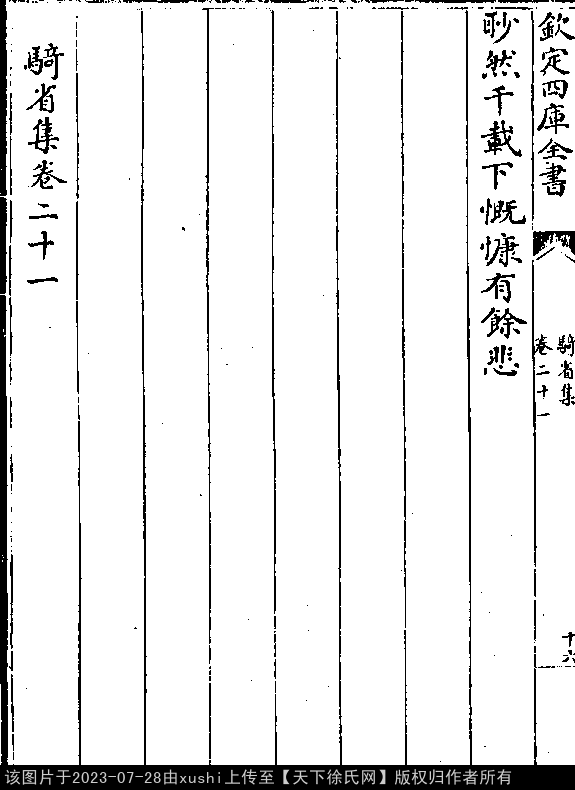 欽定四庫全書
騎省集
卷二十一
十六
眇然千載下慨慷有餘悲
騎省集卷二十一
该图片于2023-07-28由xushi上传至【天下徐氏网】版权归作者所有